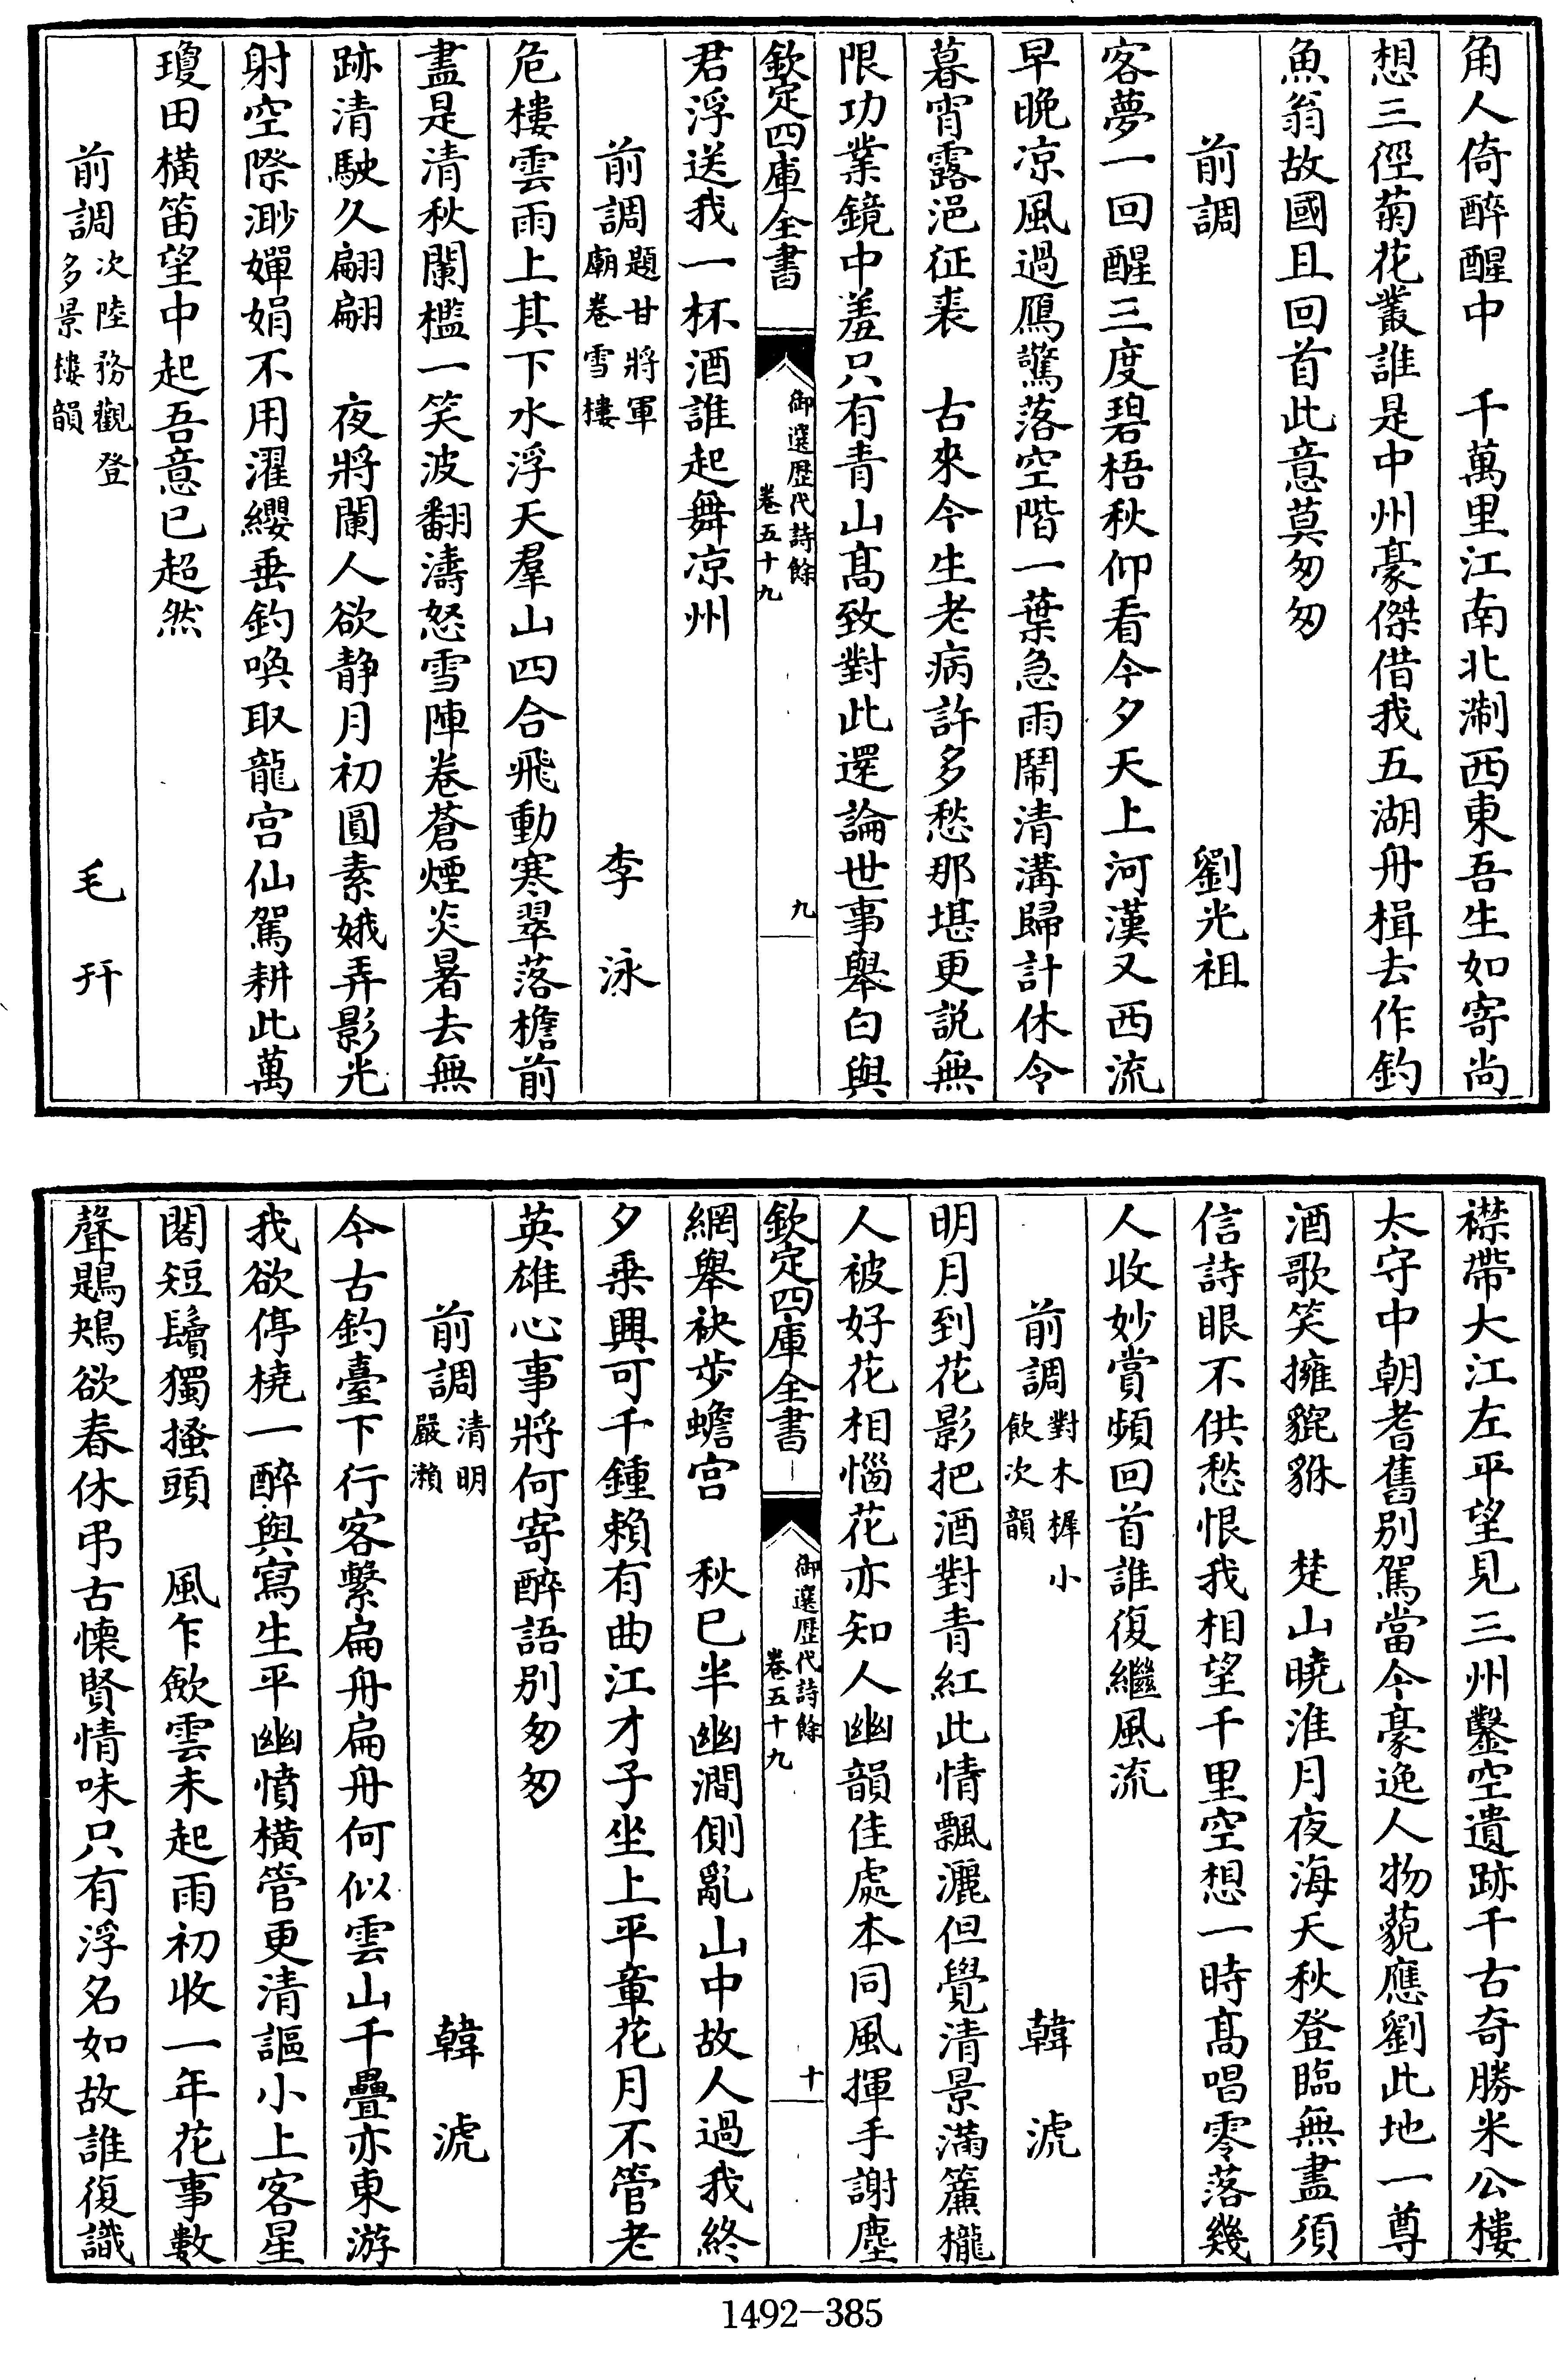 角人倚醉醒中　千萬里江南北淛西東吾生如寄尚
想三徑菊花叢誰是中州豪傑借我五湖舟楫去作釣
魚翁故國且回首此意莫匆匆
前調　劉光祖
客夢一回醒三度碧梧秋仰看今夕天上河漢又西流
早晚凉風過鴈驚落空階一葉急雨鬧清溝歸計休令
暮宵露浥征裘　古來今生老病許多愁那堪更説無
限功業鏡中羞只有青山髙致對此還論世事舉白與
欽定四庫全書
御選歴代詩餘
卷五十九
九
君浮送我一杯酒誰起舞凉州
前調題甘將軍廟卷雪樓　李泳
危樓雲雨上其下水浮天羣山四合飛動寒翠落檐前
盡是清秋闌檻一笑波翻濤怒雪陣卷蒼煙炎暑去無
跡清駛久翩翩　夜將闌人欲静月初圓素娥弄影光
射空際渺嬋娟不用濯纓垂釣喚取龍宫仙駕耕此萬
瓊田横笛望中起吾意已超然
前調次陸務觀登多景樓韻　毛幵
襟帶大江左平望見三州鑿空遺跡千古奇勝米公樓
太守中朝耆舊别駕當今豪逸人物藐應劉此地一尊
酒歌笑擁貔貅　楚山曉淮月夜海天秋登臨無盡須
信詩眼不供愁恨我相望千里空想一時髙唱零落幾
人收妙賞頻回首誰復繼風流
前調對木樨小飲次韻　韓淲
明月到花影把酒對青紅此情飄灑但覺清景滿簾櫳
人被好花相惱花亦知人幽韻佳處本同風揮手謝塵
欽定四庫全書
御選歴代詩餘
卷五十九
十
網舉袂步蟾宫　秋已半幽澗側亂山中故人過我終
夕乗興可千鍾賴有曲江才子坐上平章花月不管老
英雄心事將何寄醉語别匆匆
前調清明嚴瀨　韓淲
今古釣臺下行客繫扁舟扁舟何似雲山千疊亦東游
我欲停橈一醉與寫生平幽憤横管更清謳小上客星
閣短鬢獨搔頭　風乍歛雲未起雨初收一年花事數
聲鶗鴂欲春休弔古懐賢情味只有浮名如故誰復識
1492-385